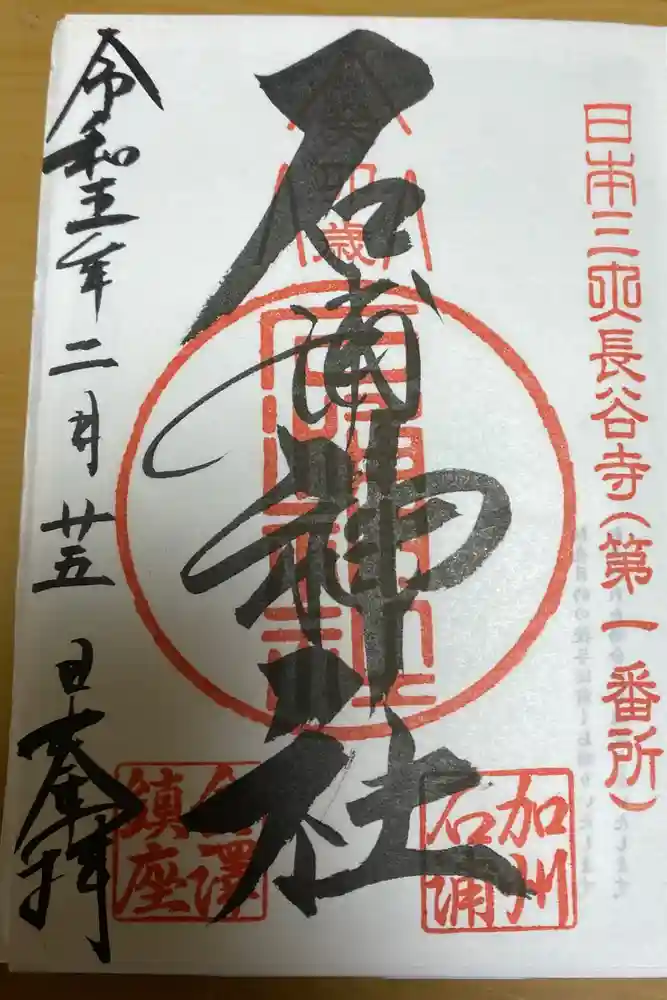 日本三大長谷寺(第一番所)
石浦神社
加州
石浦
金澤
鎮座
令和五年二月廿五日奉拝